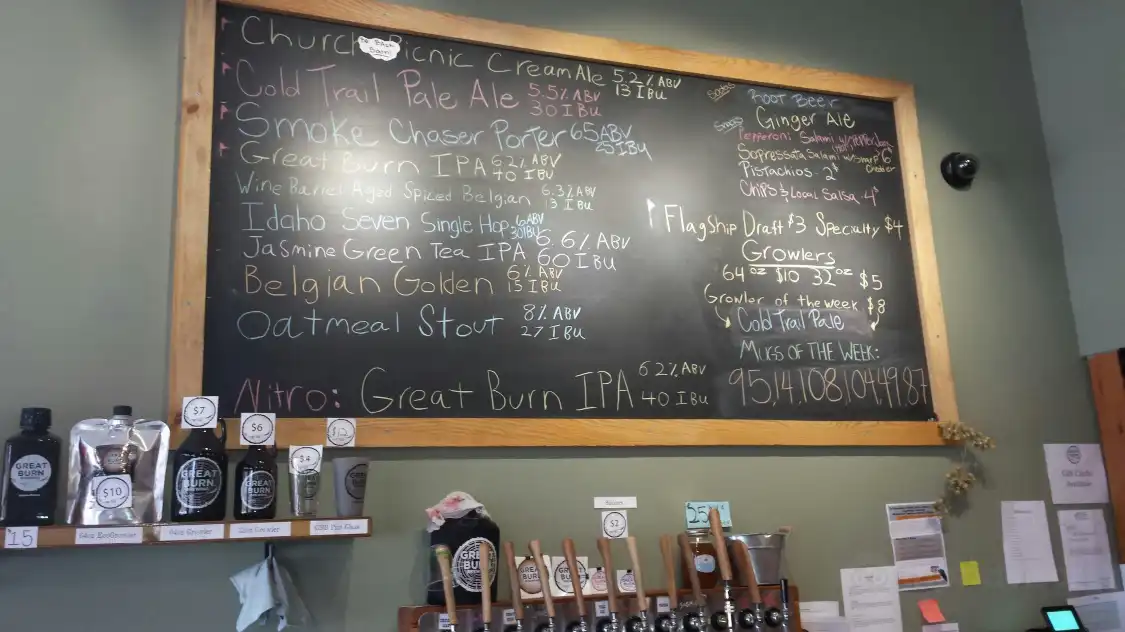 Church Picnic Cream Ale 5.2% ABV
13 IBU
Cold Trail Pale Ale 5.5% ABV
30 IBU
Smoke Chaser Porter 65 ABV
25 IBU
Great Burn IPA 62% ABV
40 IBU
Wine Barrel Aged Spiced Belgian 6.3% ABV
13 IBU
Idaho Seven Single Hop 6 ABV
30 IBU
Jasmine Green Tea IPA 6.6% ABV
60 IBU
Belgian Golden 6% ABV
15 IBU
Oatmeal Stout 8% ABV
27 IBU
Nitro: Great Burn IPA 62% ABV
40 IBU
Sodas
Root Beer
Ginger Ale
Snacks
Pepperoni Salami w/
Sopressata Salami w/ sharp 6$
Cheddar
Pistachios - 2$
Chips & Local Salsa - 4$
Flagship Draft $3 Specialty $4
Growlers
64 oz $10 32 oz $5
Growler of the week $8
Cold Trail Pale
Mugs of the Week:
95,14,108,104,49,87
$15
GREAT BURN
$10
$7
GREAT BURN
$6
GREAT BURN
$4
$12
GREAT BURN
$2
25¢